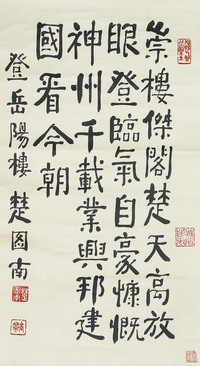 崇樓傑閣楚天高放
眼登臨氣自豪慷慨
神州千載業興邦建
國看今朝
登岳陽樓 楚圖南